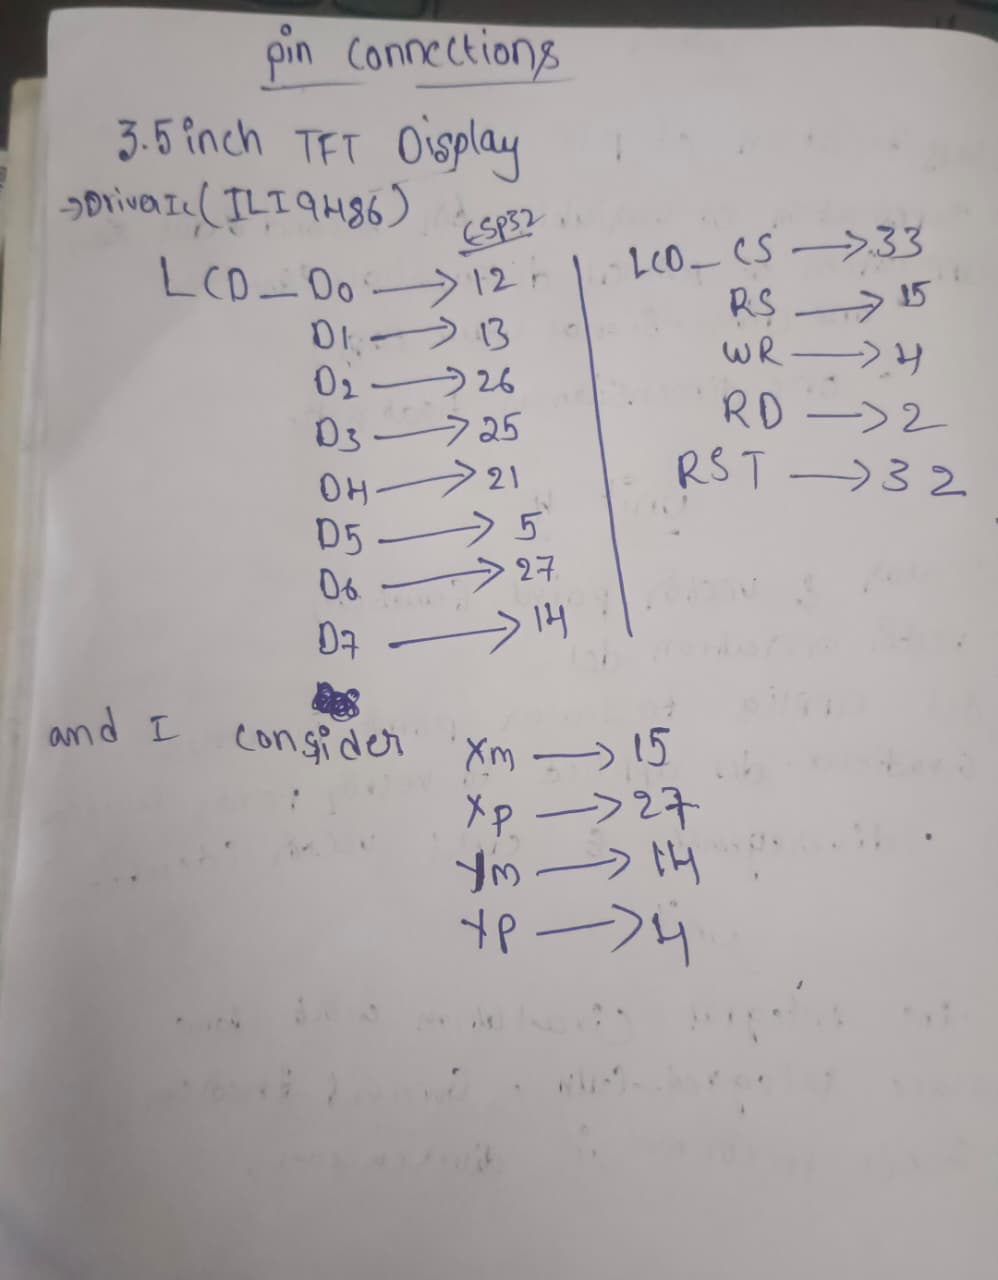 pin connections
3.5 inch TFT Display
→Driver Ic (ILI9486)
ESP32
LCD_D0 → 12
D1 → 13
D2 → 26
D3 → 25
D4 → 21
D5 → 5
D6 → 27
D7 → 14
LCD_CS → 33
RS → 15
WR → 4
RD → 2
RST → 32
and I consider
Xm → 15
Xp → 27
Ym → 14
Yp → 4